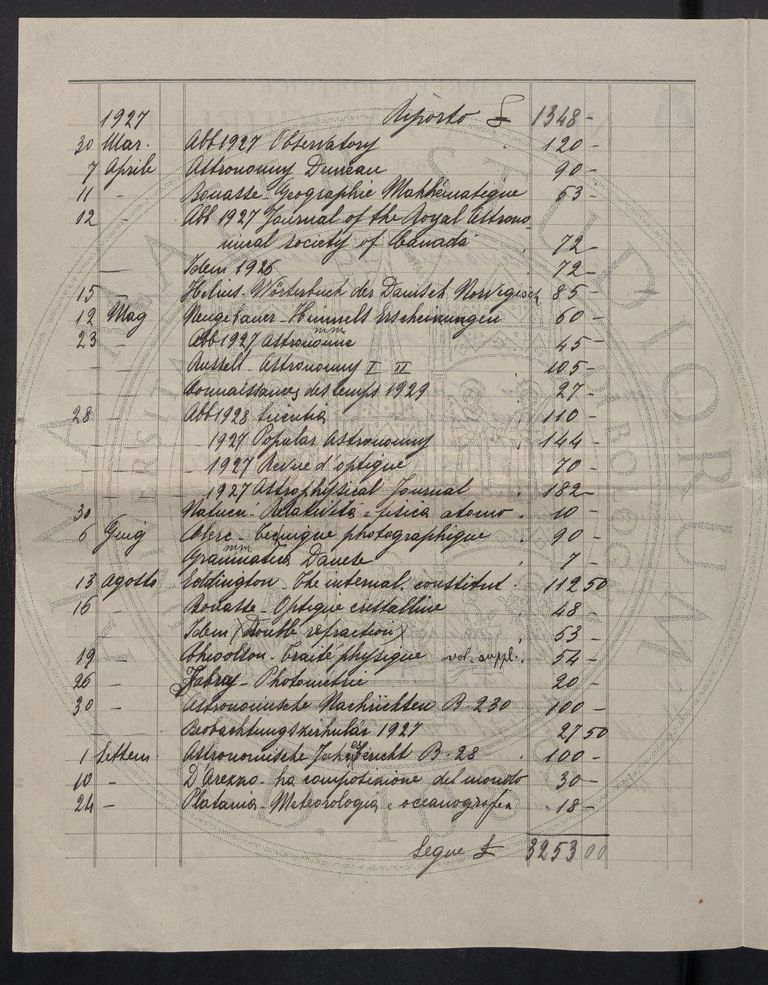 1927 Riporto £ 1348 -
30 Mar. Abb 1927 Observatory 120 -
7 Aprile Astronomy Duncan 90 -
11 - Bouasse - Geographie Mathèmatique 53 -
12 - Abb 1927 Journal of the Royal Astrono
mical society of Canada 72 -
Idem 1926 72 -
15 - Helms - Wörterbuch der Danisch Norvegisch 85 -
12 Mag Neugebauer - Himmels Erscheinungen 60 -
23 - Abb 1927 Astronomie 45 -
Russell - Astronomy I II 105 -
Connaissances des temps 1929 27 -
28 - Abb 1928 Scientia 110 -
- 1927 Popular Astronomy 144 -
- 1927 Revue d'optique 70 -
- 1927 Astrophysical Journal 182 -
30 - Relatività e fisica atomo 10 -
6 Giug Clerc - Tecnique photographique 90 -
Grammatica Danese 7 -
13 Agosto Eddington - The internal. constitut. 112 50
16 - Bouasse - Optique cristalline 48 -
Idem (Double refraction) 53 -
19 - Chwolson - Traité physique vol. suppl. 54 -
26 - Fabry - Photometrie 20 -
30 - Astronomische Nachrichten B - 230 100 -
Beobachtungszirkular 1927 27 50
1 Settem. Astronomische Jahresbericht B - 28 100 -
10 - D'Arezzo - La composizione del mondo 30 -
24 - Platania - Meteorologia e oceanografia 18 -
Segue £ 3253 00
ALMA MATER STUDIORUM